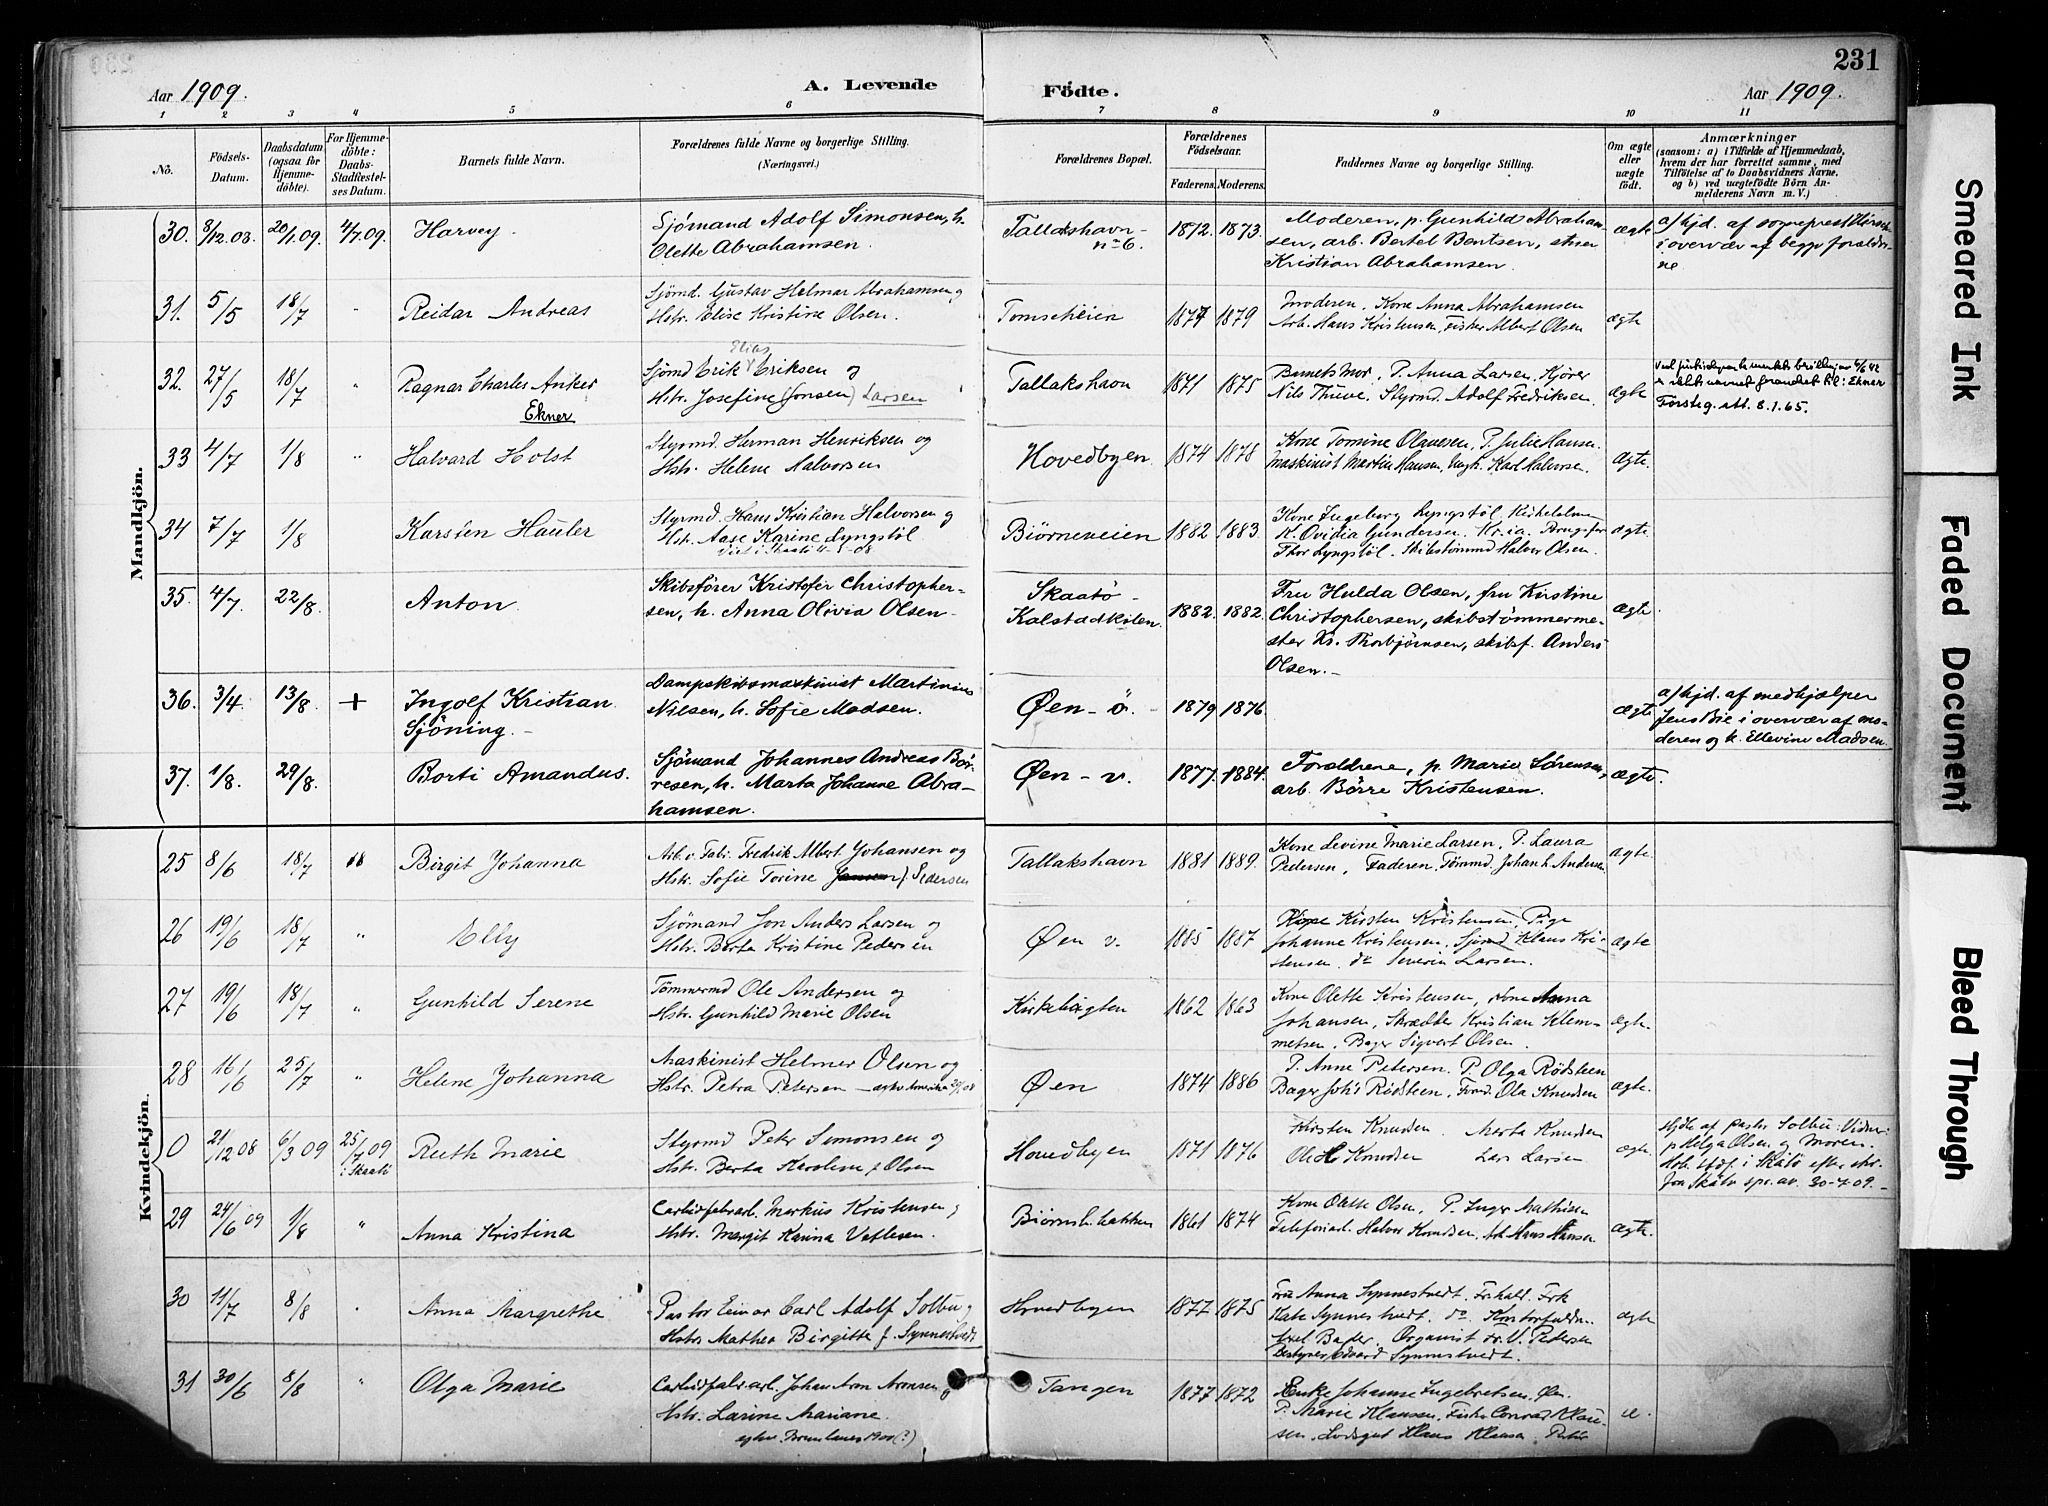 231
Aar 1909.
A. Levende Födte.
Aar 1909.
1 2 3 4 5 6 7 8 9 10 11
No.
Födsels-Datum.
Daabsdatum (ogsaa for Hjemme-döbte).
For Hjemme-döbte: Daabs-Stadfæstel-ses Datum.
Barnets fulde Navn.
Forældrenes fulde Navne og borgerlige Stilling. (Næringsvei.)
Forældrenes Bopæl.
Forældrenes Födselsaar.
Faderens. Moderens.
Faddernes Navne og borgerlige Stilling.
Om ægte eller uægte födt.
Anmærkninger
(saasom: a) i Tilfælde af Hjemmedaab, hvem der har forrettet samme, med Tilföielse af to Daabsvidners Navne, og b) ved uægtefödte Börn An-melderens Navn m. V.)
Mandkjön.
30. 8/12.08. 20/1.09. 4/7.09. Harvey
Sjömand Adolf Simonsen, h.
Olette Abrahamsen.
Tallakshavn- no 6.
1872. 1873.
Moderen, p. Gunhild Abraham-
sen, arb. Bertel Bentsen,
Kristian Abrahamsen.
ægte
a/ hjd. af sogneprest
i overvær af begge forældre-
ne
31. 5/5 18/7 " Reidar Andreas
Sjömd. Gustav Helmar Abrahamsen og
Hstr. Elise Kristine Olsen.
1877 1879
Moderen. Kone Anna Abrahamsen
Arb. Hans Kristensen, Fisker Albert Olsen
ægte
32. 27/5 18/7 " Ragnar Charles Anker
Ekner
Elias
Sjömd Erik Eriksen og
Hstr. Josefine (Jonsen) Larsen
Tallakshavn
1871 1875
Barnets Mor, P. Anna Larsen,
Nils Thuve. Styrmd. Adolf Fredriksen.
ægte
forandret til: Ekner
8.1.65.
33 4/7 1/8 " Halvard Holst
Styrmd. Herman Henriksen og
Hstr. Helene Halvorsen
Hovedbyen.
1874 1878
Kone Tomine Olavesen, P. Julie Hansen.
Maskinist Martin Hansen, Ungk. Karl Halvorsen.
ægte.
34 7/7 1/8 Karsten Hauler
Styrmd. Hans Kristian Halvorsen og
Hstr. Aase Karine Lyngstöl
Biörneveien
1882 1883.
Kone Ingeborg Lyngstöl,
K. Ovidia Gundersen. Kr.ia.
Thor Lyngstöl. Skibstömmd Halvor Olsen.
ægte.
35. 4/7. 22/8. Anton.
Skibsförer Kristofer Christopher-
sen, h. Anna Olivia Olsen.
Skaatö-
Kalstadkilen.
1882. 1882.
Fru Hulda Olsen, fru Kirstine
Christophersen, skibstömmerme-
ster Kr. Thorbjörnsen, skibsf. Anders
Olsen.-
ægte
36. 3/4. 13/8. + Ingolf Kristian
Sjöning.-
Dampskibsmaskinist Martinius
Nilsen, h. Sofie Madsen.
Øen-ö.
1879 1876.
ægte
a/ hjd. af medhjælper
Jens Bie i overvær af mo-
deren og k. Ellevine Madsen.
37. 1/8. 29/8. Borti Amandus.
Sjömand Johannes Andreas Bör-
resen, h. Marta Johanne Abra-
hamsen.
Øen-v.
1877. 1884.
Forældrene, p. Marie Sörensen,
arb. Börre Kristensen.
ægte.
Kvindekjön.
25 8/6 18/7 18 Birgit Johanna
Arb. v. Fabr. Fredrik Albert Johansen og
Hstr. Sofie Torine Jansen f. Pedersen
Tallakshavn
1881 1889.
Kone Levine Marie Larsen, P. Laura
Pedersen, Faderen, Tömmd. Johan L. Andersen
ægte.
26 19/6 18/7 " Elly
Sjömand Jon Anders Larsen og
Hstr. Berta Kristine Pedersen
Øen v.
1885 1887
Kone Kirsten Kristensen, Pige
Johanne Kristensen. Sjömd Klaus Kri-
stensen. do Severin Larsen.
ægte
27 19/6 18/7 " Gunhild Serene
Tömmermd Ole Andersen og
Hstr. Gunhild Marie Olsen
Kirkebugten
1862 1863
Kone Olette Kristensen, Kone Anna
Johansen, Skrædder Kristian Klem-
metsen. Bager Sigvert Olsen.
ægte.
28 16/6 25/7 " Helene Johanna
Maskinist Helmer Olsen og
Hstr. Petra Petersen
Øen
1874 1886
P. Anne Petersen. P. Olga Rödsteen
Bager Johs Rödsteen. Ola Knudsen
ægte.
0 21/12 08 6/3 09 25/7 09 i Skaatö Ruth Marie
Styrmd Peter Simonsen og
Hstr. Berta Karoline f. Olsen
Hovedbyen
1871 1876
Kirsten Knudsen. Marta Knudsen
Ole Knudsen Lars Larsen
ægte.
Hjdt af pastor Solbu: Vidner:
p Helga Olsen og Moren.
i Skåtö efter
fra Skåtö spr. av. 30-7-09.-
29 24/6 09 1/8 " Anna Kristina
Carbidfabr.arb. Markus Kristensen og
Hstr. Margit Karina Vetlesen.
1861 1874
Kone Olette Olsen, P. Inger Mathisen
Telefonarb. Halvor Knudsen, Arb Hans Hansen
ægte.
30 11/7 8/8 " Anna Margrethe
Pastor Einar Carl Adolf Solbu og
Hstr. Mathea Birgitte f. Synnestvedt
Hovedbyen
1877 1875
Fru Anna Synnestvedt, Frhald. Frk
Kate Synnestvedt. do.
Axel Bader, Organist Fr. V. Pedersen
Bestyrer Edvard Synnestvedt.
ægte
31 30/6 8/8 Olga Marie
Carbidfabr.arb. Johan Arn Aronsen og
Hstr. Larine Mariane.
Tangen
1877 1872
Enke Johanne Ingebretsen, Øen.
P. Marie Klausen. Fisker Conrad Klau-
sen, Lodsgut Klaus Klausen
u.
Smeared Ink
Faded Document
Bleed Through